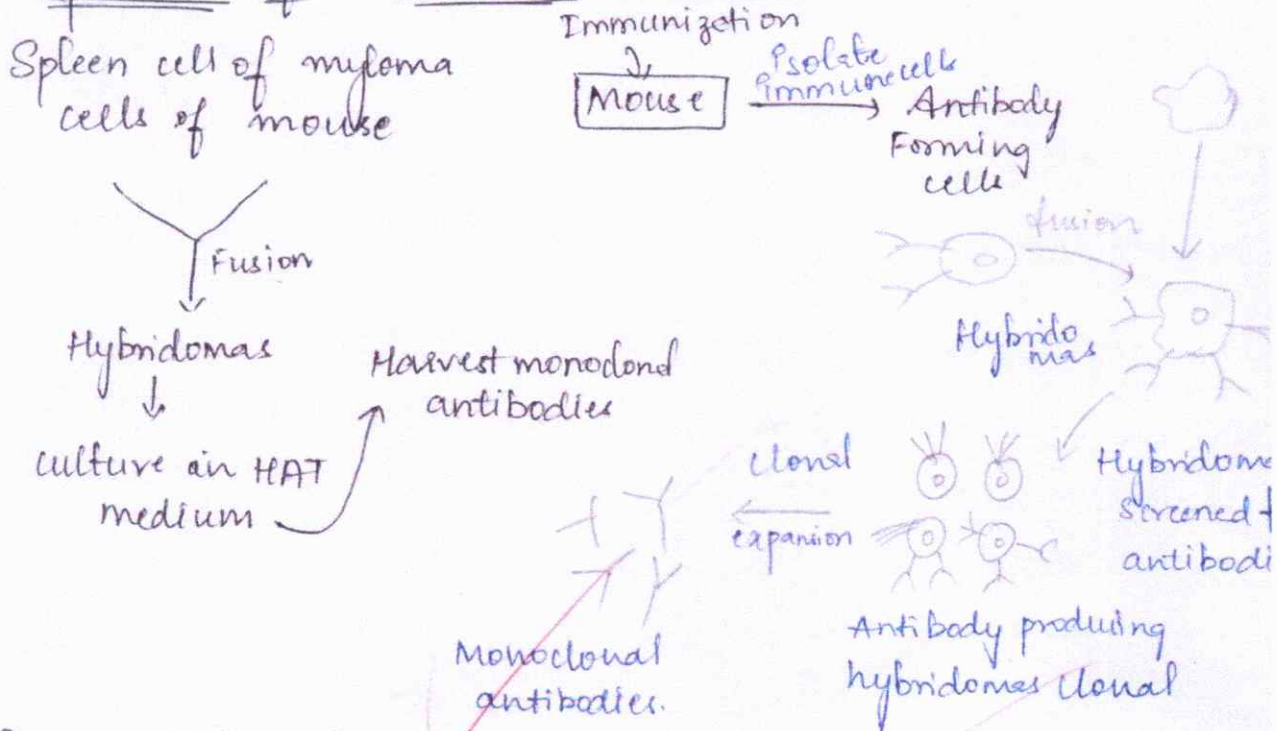 Spleen cell of myloma
cells of mouse
Fusion
Hybridomas
Culture in HAT
medium
Harvest monoclonal
antibodies
Immunization
Mouse
isolate
immune cells
Antibody
Forming
cells
fusion
Hybrido
mas
Hybridoma
screened
antibodi
Antibody producing
hybridomas Clonal
Clonal
expansion
Monoclonal
antibodies.